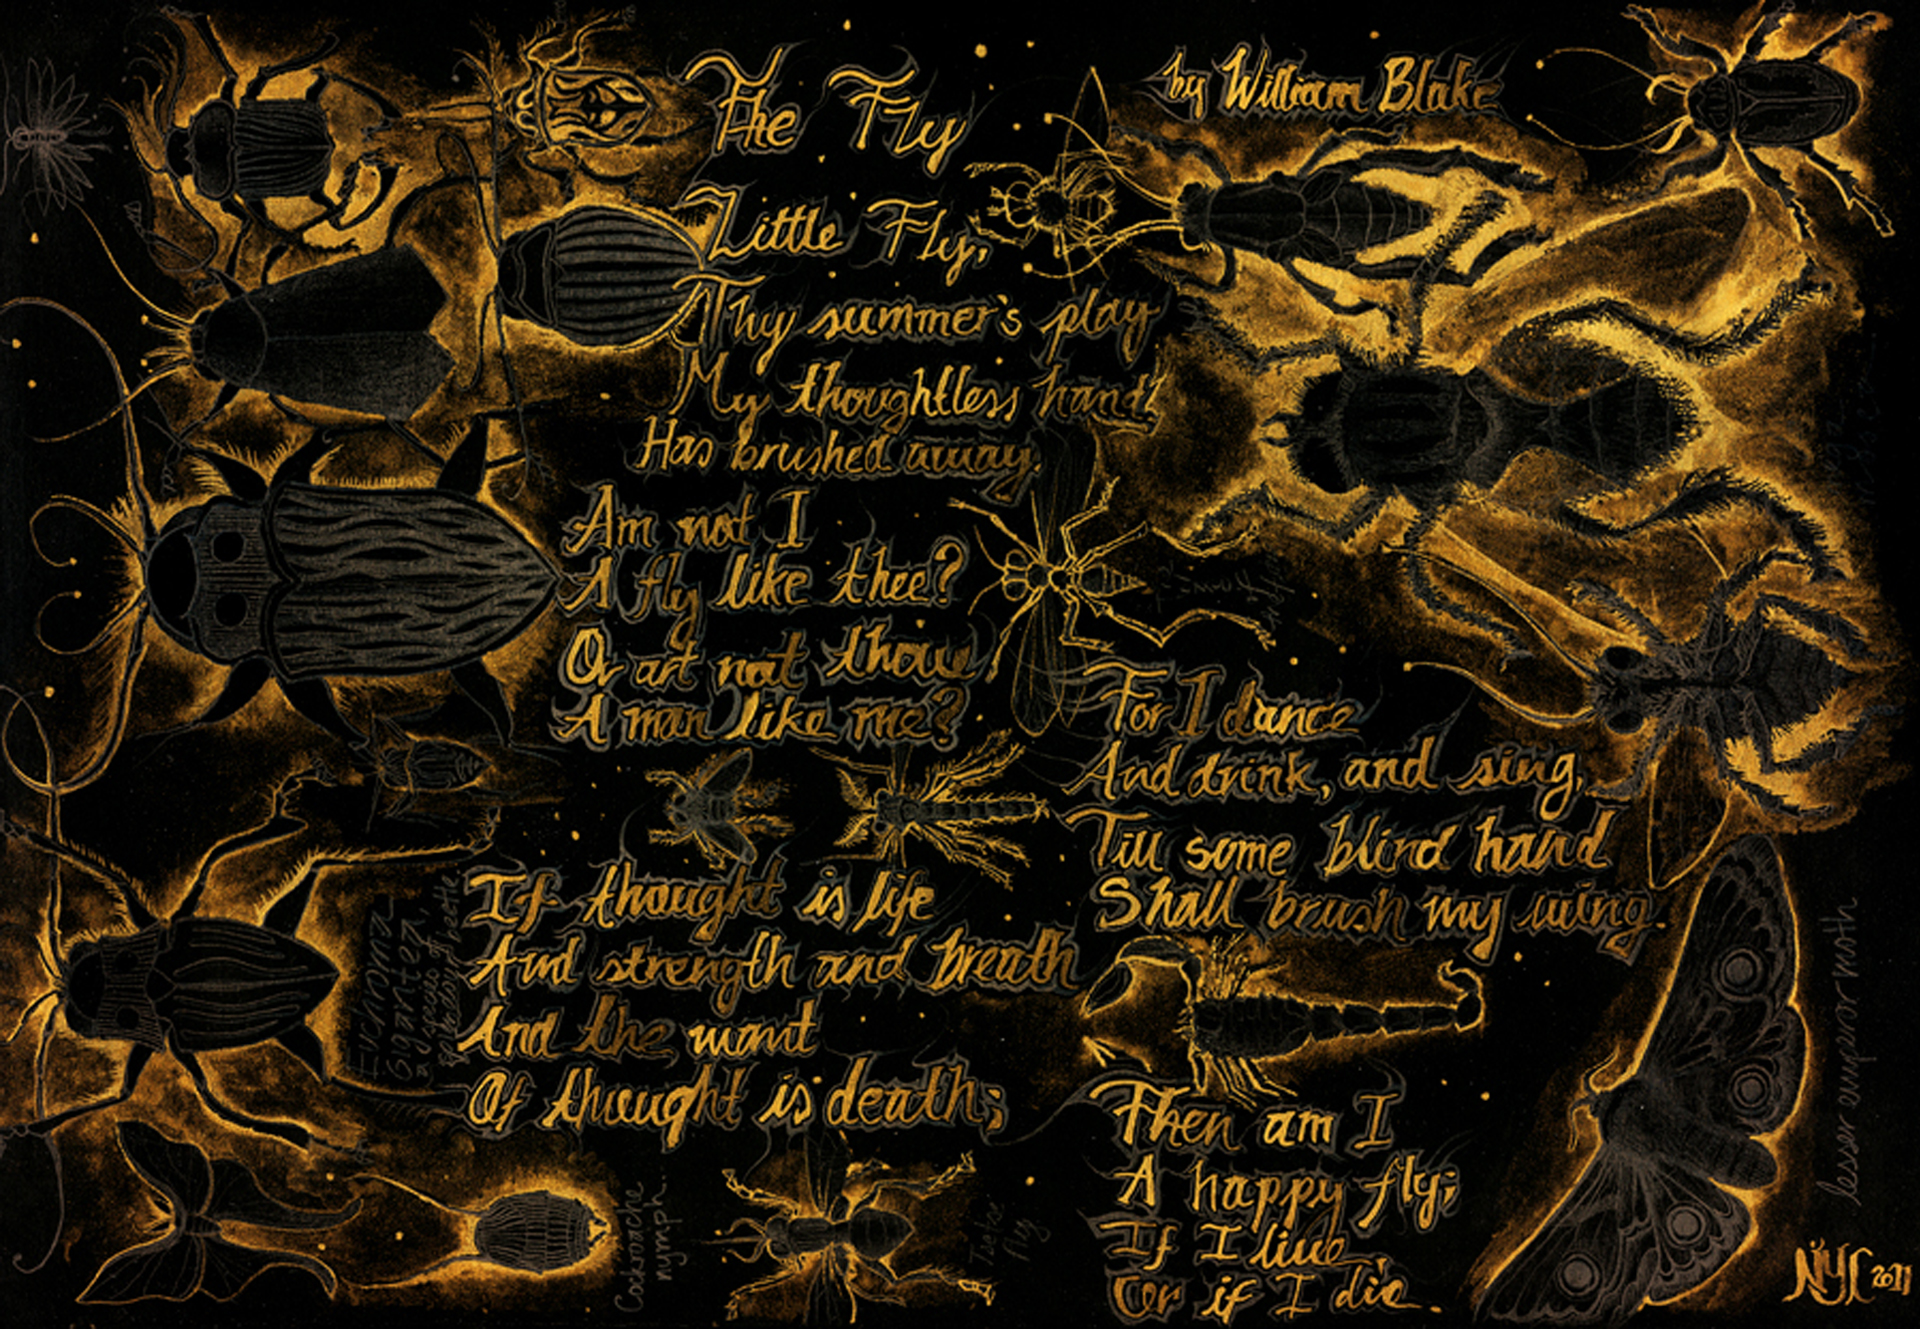 The Fly
by William Blake
Little Fly,
Thy summer's play
My thoughtless hand
Has brushed away.
Am not I
A fly like thee?
Or art not thou
A man like me?
For I dance
And drink, and sing,
Till some blind hand
Shall brush my wing.
If thought is life
And strength and breath
And the want
Of thought is death;
Then am I
A happy fly;
If I live,
Or if I die.
Euchroma
Gigantea,
a species of
beetle
Cockroache
nymph.
Tsetse
fly
lesser emperor moth
NYC 2011